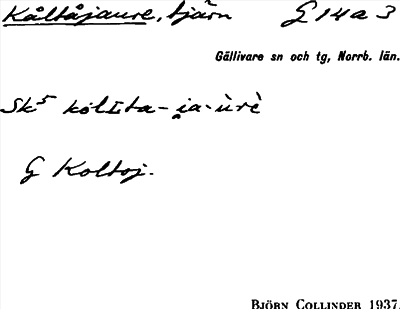 Kåltåjaure, tjärn G 14 a 3
Gällivare sn och tg, Norrb. län.
Sk⁵ kòlIta-i̯a-ùrè
G Koltoj.
BJÖRN COLLINDER 1937.